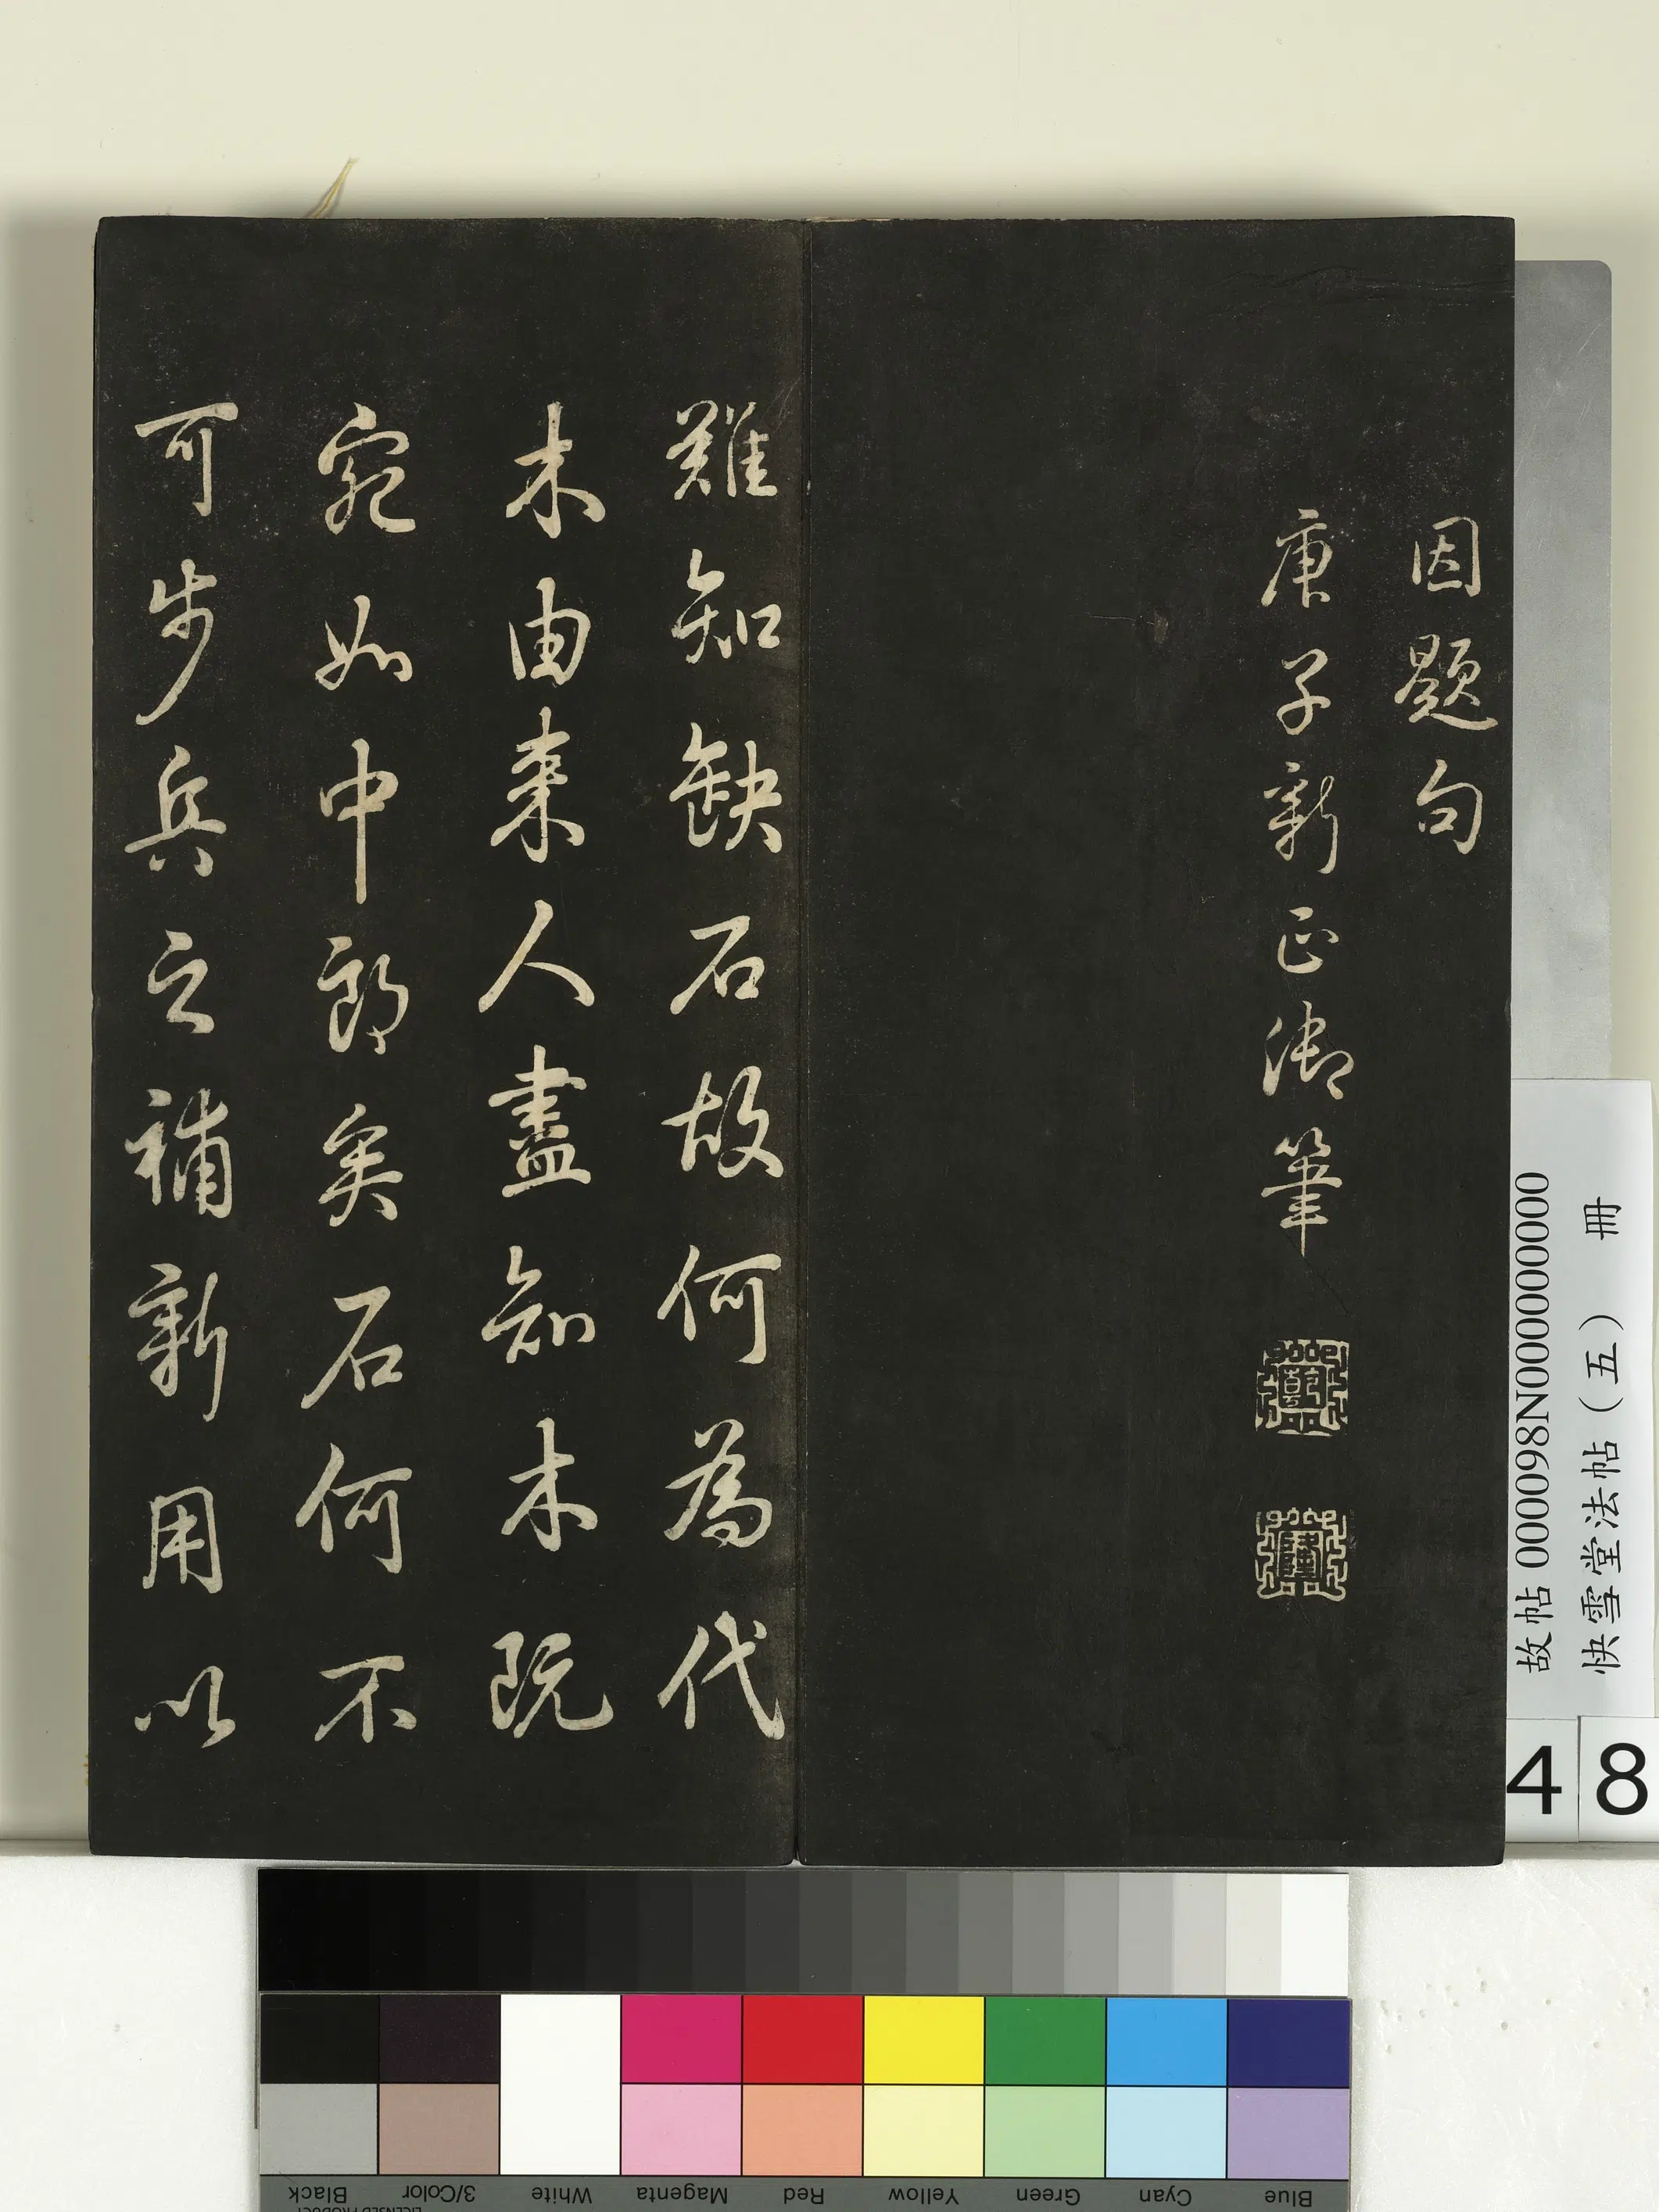 因題句
庚子新正御筆
難知缺石故何為代
木由来人盡知木既
宛如中郎矣石何不
可步兵之補新用以
故帖 000098N000000000
快雪堂法帖（五） 冊
48
Black
3/Color
White
Magenta
Red
Yellow
Green
Cyan
Blue
LICENSED PRODUCT